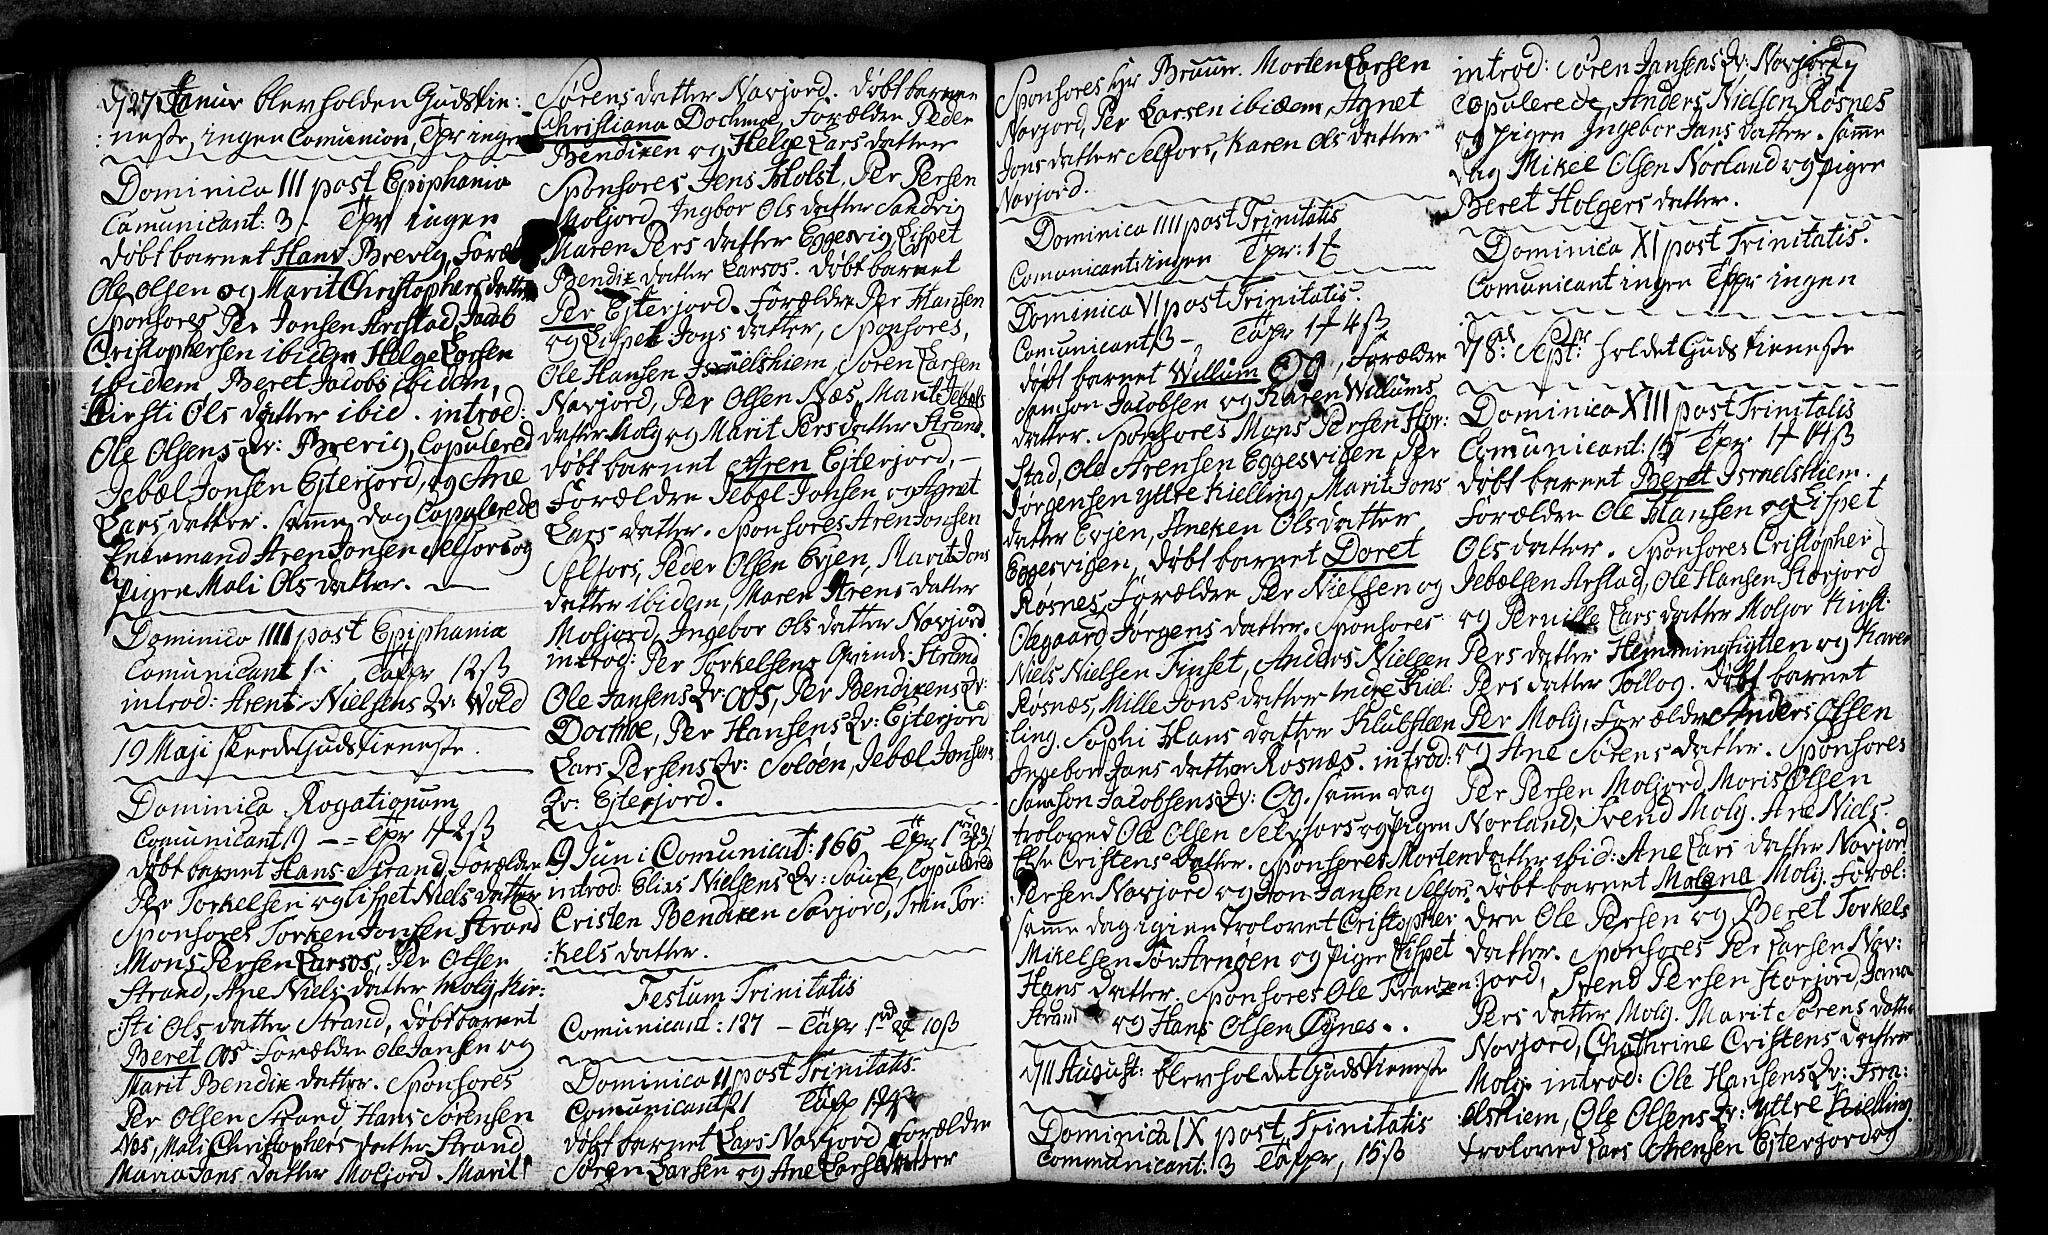 d/27 Januar blev holden Gudstie:
:neste, ingen Comunion, Tpr ingen
Dominica III post Epiphania
Comunicant: 3 - Tpr ingen
Døbt barnet Hans Brevig, Foræl
Ole Olsen og Marit Christophersdatter
Sponsores Per Jonsen Arstad, Jacob
Cristophersen ibidem Helge Larsen
ibidem, Beret Jacobs ibidem,
Kirsti Ols datter ibid. introd:
Ole Olsens Qv: Brevig, Copulered
Jebæl Jonsen Ejterjord, og Ane
Lars datter. samme dag Copulerede
Enkemand Aren Jonsen Selfors og
Pigen Mali Ols datter.
Dominica IIII post Epiphania
Comunicant 1: Tafpr 12ß
introd: Arent Nielsens Qv: Wold
19 Maji skeede Gudstieneste.
Dominica Rogationum
Comunicant 19 -- Tpr 1# 2ß
døbt barnet Hans Strand, Forældre
Per Torkelsen og Lispet Niels datter
Sponsores Torken Jonsen Strand
Mons Persen Larsos, Per Olsen
Strand, Ane Niels datter Molij, Kir:
:sti Ols datter Strand, døbt barnet
Beret Oos Forældre Ole Jansen og
Marit Bendix datter. Sponsores
Per Olsen Strand, Hans Sørensen
Næs, Mali Christophers datter Strand
Maria Jans datter Moljord. Marit
Sørens datter Navjord. døbt barnet
Christiana Dochmoe, Forældre Peder
Bendixen og Helge Lars datter
Sponsores Jens Holst, Per Persen
Moljord, Ingbor Ols datter Sandvig
Maren Pers datter Eggesvig, Lispet
Bendix datter Larsos. døbt barnet
Per Ejterjord. Forældre Per Hansen
og Lispet Jons datter, Sponsores,
Ole Hansen Israelshiem, Søren Larsen
Navjord, Per Olsen Næs, Marit Jebæls
datter Molij og Marit Pers datter Strand.
døbt barnet Aren Ejterjord,
Forældre Jebæl Jonsen og Agnet
Lars datter. Sponsores Aren Jonsen
Selfors, Peder Olsen Evjen, Marit Jons
datter ibidem, Maren Arens datter
Moljord, Ingebor Ols datter Navjord.
introd: Per Torkelsens Qvinde: Strand
Ole Jansens Qv: Oos, Per Bendixens Qv:
Dochmoe, Per Hansens Qv: Ejterjord
Lars Persens Qv: Soløen, Jebæl Jonsens
Qv: Ejterjord.
9 Juni Comunicant: 166 - Tpr 1rd
introd: Elias Nielsens Qv: Saure, Copulered
Cristen Bendixen Sørjord, Trin Tor:
:kels datter.
Festum Trinitatis
Comunicant: 127 - Tafpr 1rd 2# 10ß
Dominica II post Trinitatis.
Comunicant 21 Tafpr 1#
døbt barnet Lars Navjord, Forældre
Søren Larsen og Ane Lars datter
Sponsores hr Bruun. Morten Larsen
Navjord, Per Larsen ibidem, Agnet
Jons datter Selfors, Karen Ols datter
Navjord.
Dominica IIII post Trinitatis
Comunicants ingen Tpr: 1#
Dominica VI post Trinitatis.
Comunicant 3 - Tafpr 1# 4ß
døbt barnet Willum Og, Forældre
Samson Jacobsen og Karen Willums
datter. Sponsores Mons Persen Hor:
stad, Ole Arensen Eggesvigen Per
Jørgensen yttre Kielling, Marit Jons
datter Evjen, Aneken Ols datter
Eggesvigen, døbt barnet Doret
Røsnes, Forældre Per Nielsen og
Olegaard Jørgens datter. Sponsores
Niels Nielsen Finset, Anders Nielsen
Røsnæs, Mille Jons datter Indre Kiel:
:ling. Sophi Hans datter Klubsteen
Ingebor Jans datter Røsnæs. introd:
Samson Jacobsens Qv: Og. samme dag
troloved Ole Olsen Selfors og Pigen
Else Cristens datter. Sponsores Morten
Persen Navjord og Jon Jansen Selfors.
samme dag igien trolovet Cristopher
Mikelsen Sør Arnøen og Pigen Lispet
Hans datter. Sponsores Ole Frantzen
Strand og Hans Olsen Ognes..
d/11 August: blev holdet Gudstieneste
Dominica IX post Trinitatis
Comunicant: 3 Tafpr, 15ß
introd: Søren Jansens Qv: Navjord
Copulerede, Anders Nielsen Røsnes
og Pigen Ingebor Jans datter. samme
dag Mikel Olsen Norland og Piger
Beret Holgers datter.
Dominica XI post Trinitatis.
Comunicant ingen Tafpr ingen
d/8de Septr: holdet Guds tieneste
Dominica XIII post Trinitatis
Comunicant: 15 Tpr 1# 14ß
døbt barnet Beret Israelshiem.
Forældre Ole Hansen og Lispet
Ols datter. Sponsores Cristopher
Jebælsen Arstad, Ole Hansen Storjord
og Pernille Lars datter Moljor Kirst:
Pers datter Hemminghytten og Karen
Pers datter Tollog. døbt barnet
Per Molij, Forældre Anders Olsen
og Ane Sørens datter. Sponsores
Per Persen Moljord, Moris Olsen
Norland, Svend Molij. Ane Niels
datter ibid: Ane Lars datter Navjord
døbt barnet Malena Molij. Foræl:
dre Ole Persen og Beret Torkels
datter. Sponsores Per Larsen Nav:
:jord, Svend Persen Storjord,
Pers datter Molij. Marit Sørens datter
Navjord, Chathrine Cristens datter
Molij. introd: Ole Hansens Qv: Isra:
elshiem, Ole Olsens Qv: yttre Kielling.
troloved Lars Arensen Ejterjord og